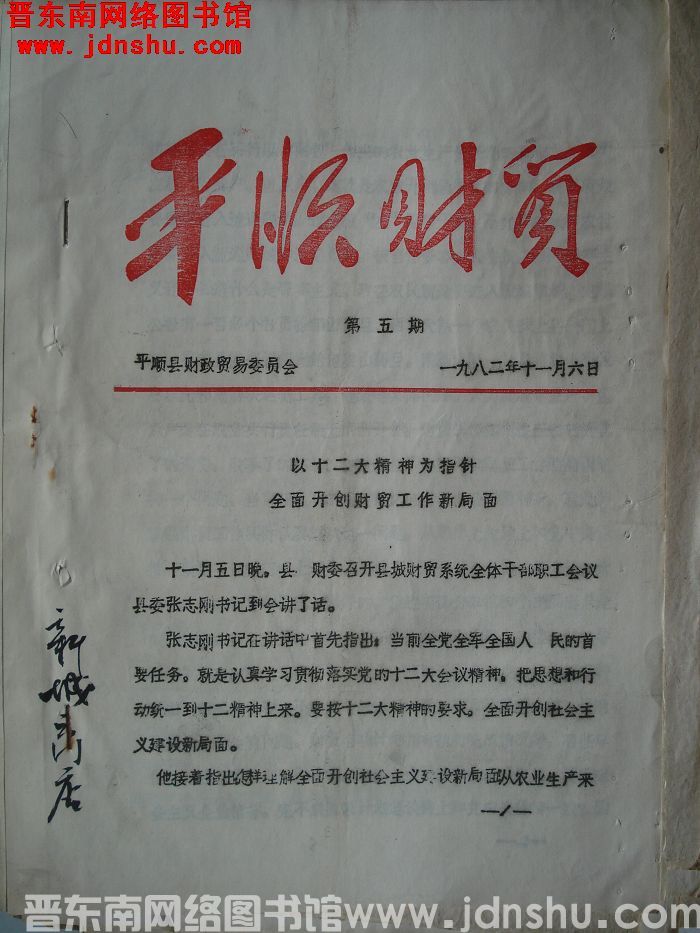 晋东南网络图书馆
www.jdnshu.com
平顺财贸
第五期
平顺县财政贸易委员会 一九八二年十一月六日
以十二大精神为指针
全面开创财贸工作新局面
十一月五日晚。县 财委召开县城财贸系统全体干部职工会议
县委张志刚书记到会讲了话。
张志刚书记在讲话中首先指出：当前全党全军全国人 民的首
要任务。就是认真学习贯彻落实党的十二大会议精神。把思想和行
动统一到十二精神上来。要按十二大精神的要求。全面开创社会主
义建设新局面。
他接着指出怎样理解全面开创社会主义建设新局面从农业生产来
—1—
新城商店
晋东南网络图书馆 www.jdnshu.com